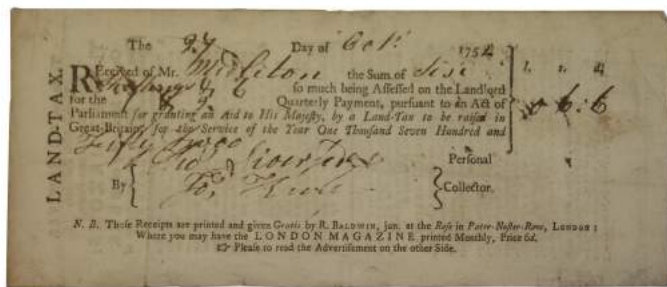 LAND-TAX.
The 27 Day of Octr. 1752
Received of Mr. Middleton the Sum of Six
Shillings & 6 so much being Assessed on the Landlord
for the Quarterly Payment, pursuant to an Act of
Parliament for granting an Aid to His Majesty, by a Land-Tax to be raised in
Great-Britain, for the Service of the Year One Thousand Seven Hundred and
Fifty two
l. s. d.
6 : 6
Personal
By Collector.
N. B. These Receipts are printed and given Gratis by R. BALDWIN, jun. at the Rose in Pater-Noster-Row, LONDON :
Where you may have the LONDON MAGAZINE printed Monthly, Price 6d.
☞ Please to read the Advertisement on the other Side.